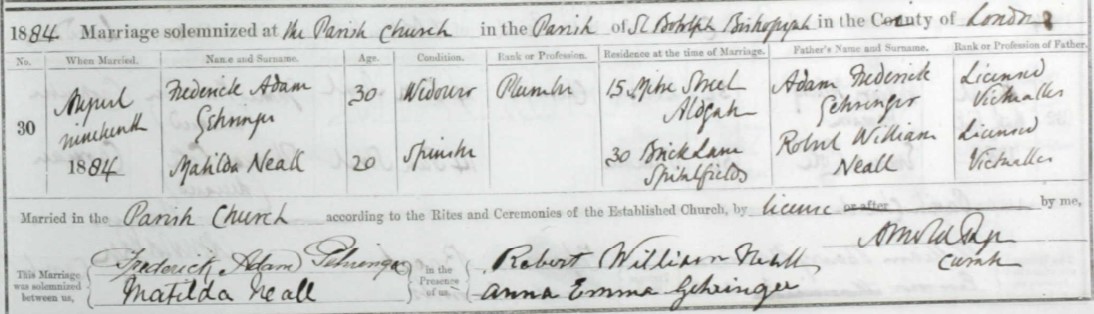 1884. Marriage solemnized at the Parish Church in the Parish of St Botolph Bishopsgate in the County of London
No. When Married. Name and Surname. Age. Condition. Rank or Profession. Residence at the time of Marriage. Father's Name and Surname. Rank or Profession of Father.
30 August nineteenth 1884 Frederick Adam Gehringer 30 Widower Plumber 15 Street Aldgate Adam Frederick Gehringer Licensed Victualler
Matilda Neall 20 Spinster 30 Brick Lane Spitalfields Robert William Neall Licensed Victualler
Married in the Parish Church according to the Rites and Ceremonies of the Established Church, by license or after by me,
Arnold
Curate
This Marriage was solemnized between us, Frederick Adam Gehringer Matilda Neall
In the Presence of us, Robert William Neall Anna Emma Gehringer